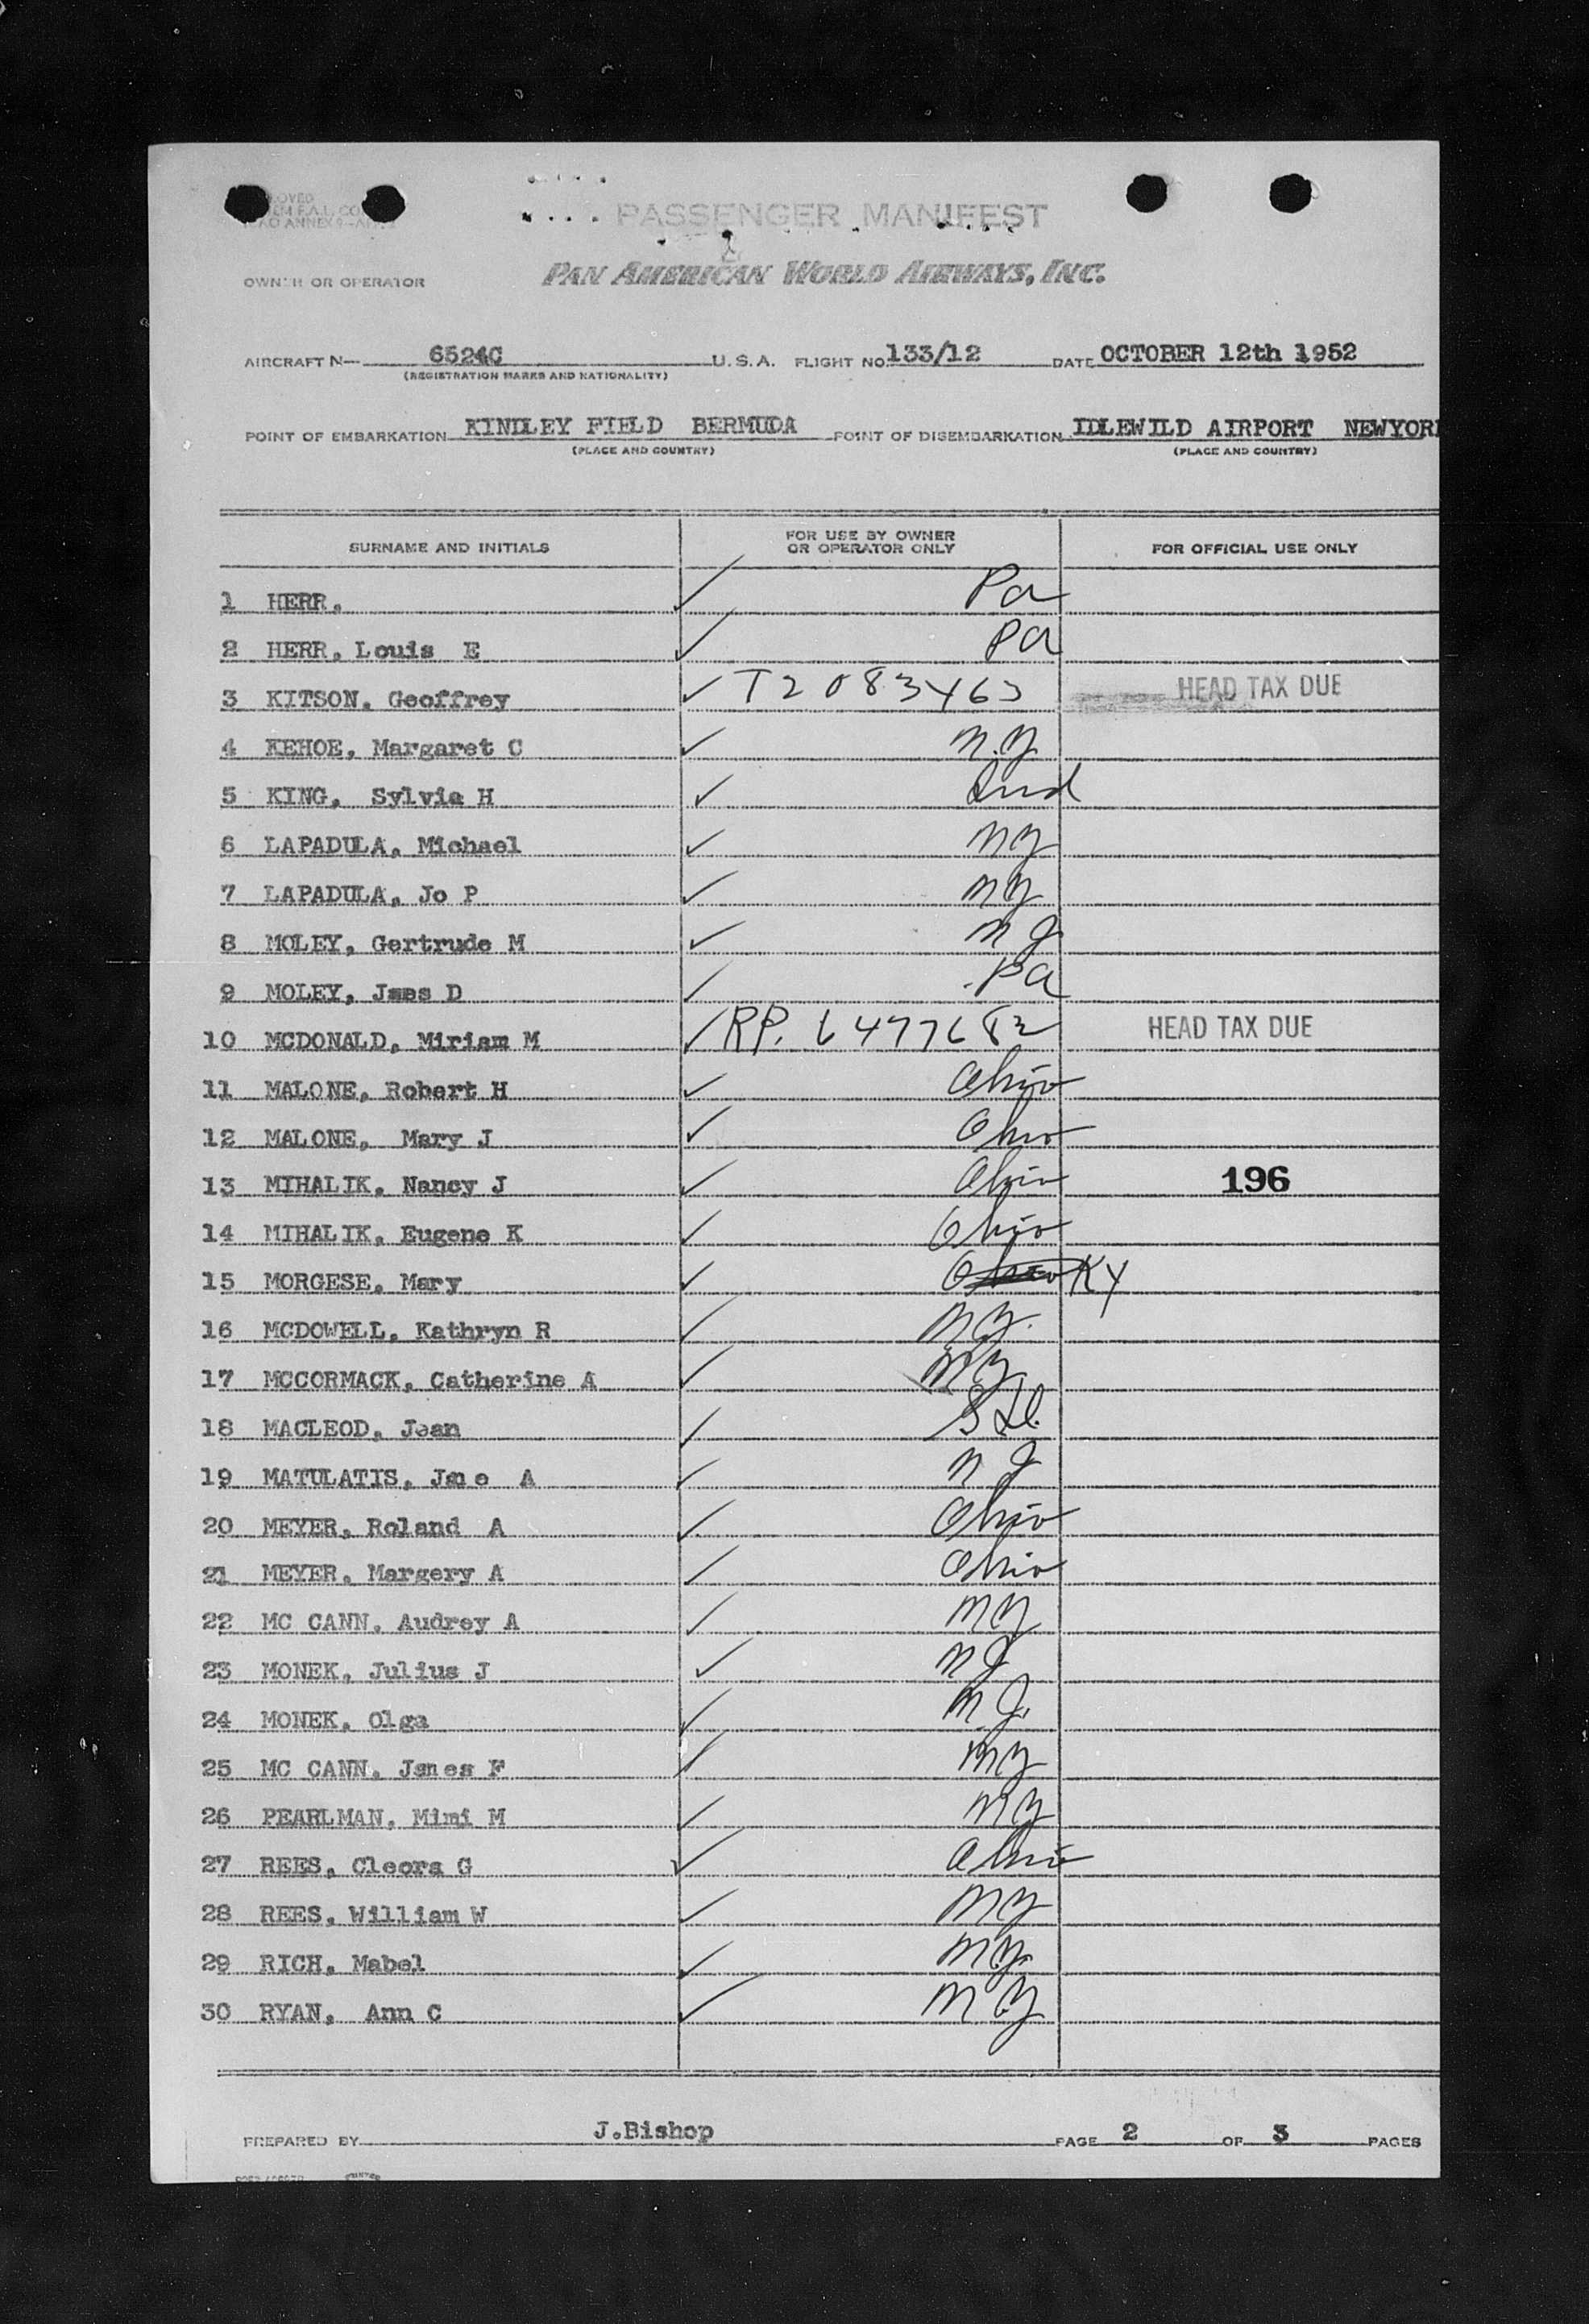 PASSENGER MANIFEST
OWNER OR OPERATOR PAN AMERICAN WORLD AIRWAYS, INC.
AIRCRAFT N— 6524C U.S.A. FLIGHT NO 133/12 DATE OCTOBER 12th 1952
(REGISTRATION MARKS AND NATIONALITY)
POINT OF EMBARKATION KINDLEY FIELD BERMUDA POINT OF DISEMBARKATION IDLEWILD AIRPORT NEWYORK
(PLACE AND COUNTRY) (PLACE AND COUNTRY)
SURNAME AND INITIALS FOR USE BY OWNER OR OPERATOR ONLY FOR OFFICIAL USE ONLY
1 HERR. ✓ Pa
2 HERR, Louis E ✓ Pa
3 KITSON, Geoffrey ✓ T2083463 HEAD TAX DUE
4 KEHOE, Margaret C ✓ N.Y
5 KING, Sylvia H ✓ Ind
6 LAPADULA, Michael ✓ NY
7 LAPADULA, Jo P ✓ NY
8 MOLEY, Gertrude M ✓ NJ
9 MOLEY, Jmes D ✓ Pa
10 MCDONALD, Miriam M ✓ RP. 6477682 HEAD TAX DUE
11 MALONE, Robert H ✓ Ohio
12 MALONE, Mary J ✓ Ohio
13 MIHALIK, Nancy J ✓ Ohio 196
14 MIHALIK, Eugene K ✓ Ohio
15 MORGESE, Mary ✓ Ohio KY
16 MCDOWELL, Kathryn R ✓ NY.
17 MCCORMACK, Catherine A ✓ NY
18 MACLEOD, Jean ✓
19 MATULATIS, Jne A ✓ NJ
20 MEYER, Roland A ✓ Ohio
21 MEYER, Margery A ✓ Ohio
22 MC CANN, Audrey A ✓ NY
23 MONEK, Julius J ✓ NJ
24 MONEK, Olga ✓ N.J.
25 MC CANN, James F ✓ NY
26 PEARLMAN, Mimi M ✓ NY
27 REES, Cleora G ✓ Ohio
28 REES, William W ✓ NY
29 RICH, Mabel ✓ NY.
30 RYAN, Ann C ✓ NY
PREPARED BY J.Bishop PAGE 2 OF 3 PAGES